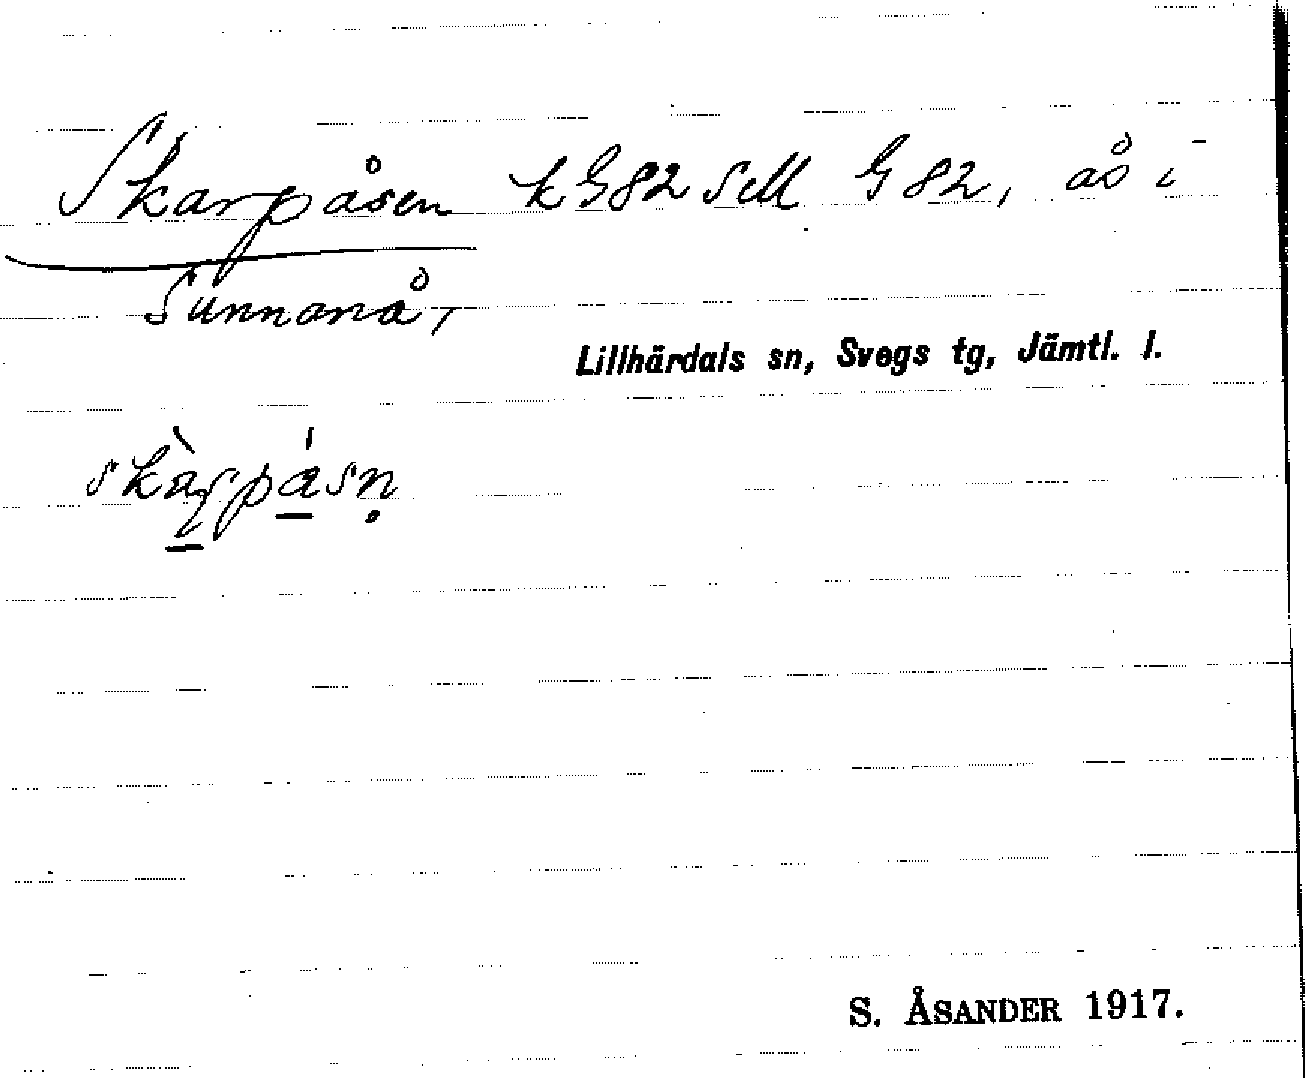 Skarpåsen k G82 SellG82, ås i
Sunnanå,
Lillhärdals sn, Svegs tg, Jämtl. l.
skàrpásṇ
S. ÅSANDER 1917.